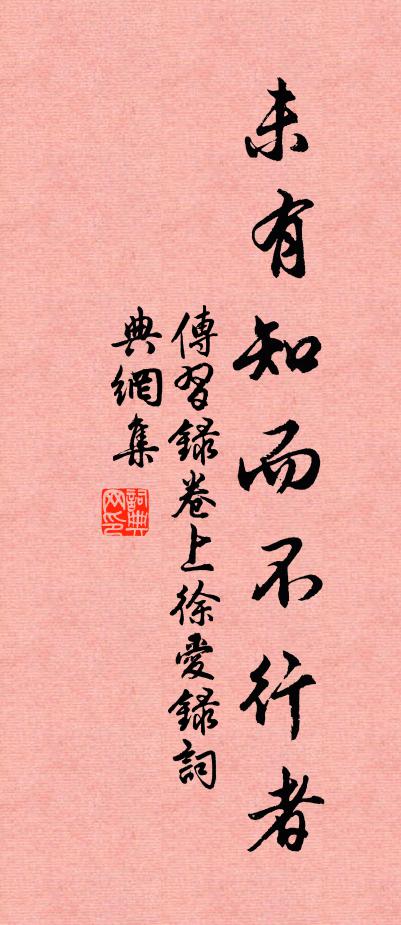 未有知而不行者
傳習録卷上徐愛録詞
典網集
詞典
网印